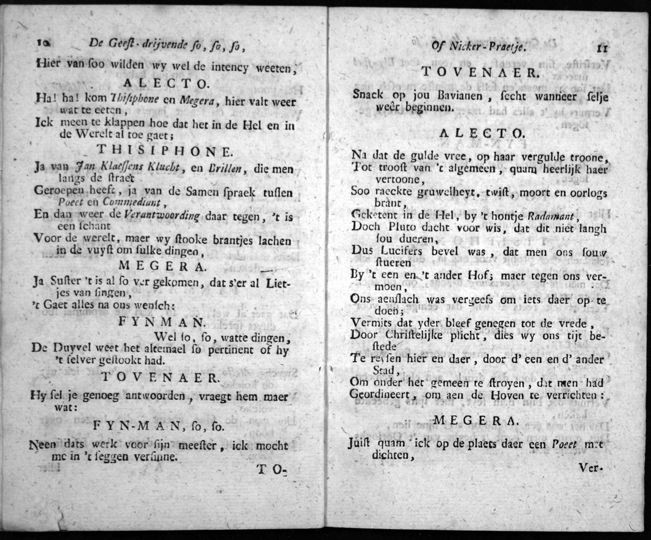 10 De Geest-drijvende so, so, so,
Hier van soo wilden wy wel de intency weeten,
ALECTO.
Ha! ha! kom Thisiphone en Megera, hier valt weer
wat te eeten,
Ick meen te klappen hoe dat het in de Hel en in
de Werelt al toe gaet;
THISIPHONE.
Ja van Jan Klaessens Klucht, en Brillen, die men
langs de straet
Geroepen heeft, ja van de Samen spraek tussen
Poeet en Commediant,
En dan weer de Verantwoording daar tegen, 't is
een schant
Voor de werelt, maer wy stooke brantjes lachen
in de vuyst om sulke dingen,
MEGERA.
Ja Suster 't is al so ver gekomen, dat s'er al Liet-
jes van singen,
't Gaet alles na ons wensch:
FYNMAN.
Wel so, so, watte dingen,
De Duyvel weet het altemael so pertinent of hy
't selver gestookt had.
TOVENAER.
Hy sel je genoeg antwoorden, vraegt hem maer
wat:
FYN-MAN, so, so.
Neen dats werk voor sijn meester, ick mocht
me in 't seggen versinne.
TO-
Of Nicker-Praetje. 11
TOVENAER.
Snack op jou Bavianen, secht wanneer selje
weer beginnen.
ALECTO.
Na dat de gulde vree, op haar vergulde troone,
Tot troost van 't algemeen, quam heerlijk haer
vertoone,
Soo raeckte gruwelheyt, twist, moort en oorlogs
brant,
Geketent in de Hel, by 't hontje Radamant,
Doch Pluto dacht voor wis, dat dit niet langh
sou dueren,
Dus Lucifers bevel was, dat men ons souw
stueren
By 't een en 't ander Hof; maer tegen ons ver-
moen,
Ons aenslach was vergeefs om iets daer op te
doen;
Vermits dat yder bleef genegen tot de vrede,
Door Christelijke plicht, dies wy ons tijt be-
stede
Te reysen hier en daer, door d' een en d' ander
Stad,
Om onder het gemeen te stroyen, dat men had
Geordineert, om aen de Hoven te verrichten:
MEGERA.
Juist quam ick op de plaets daer een Poeet met
dichten,
Ver-